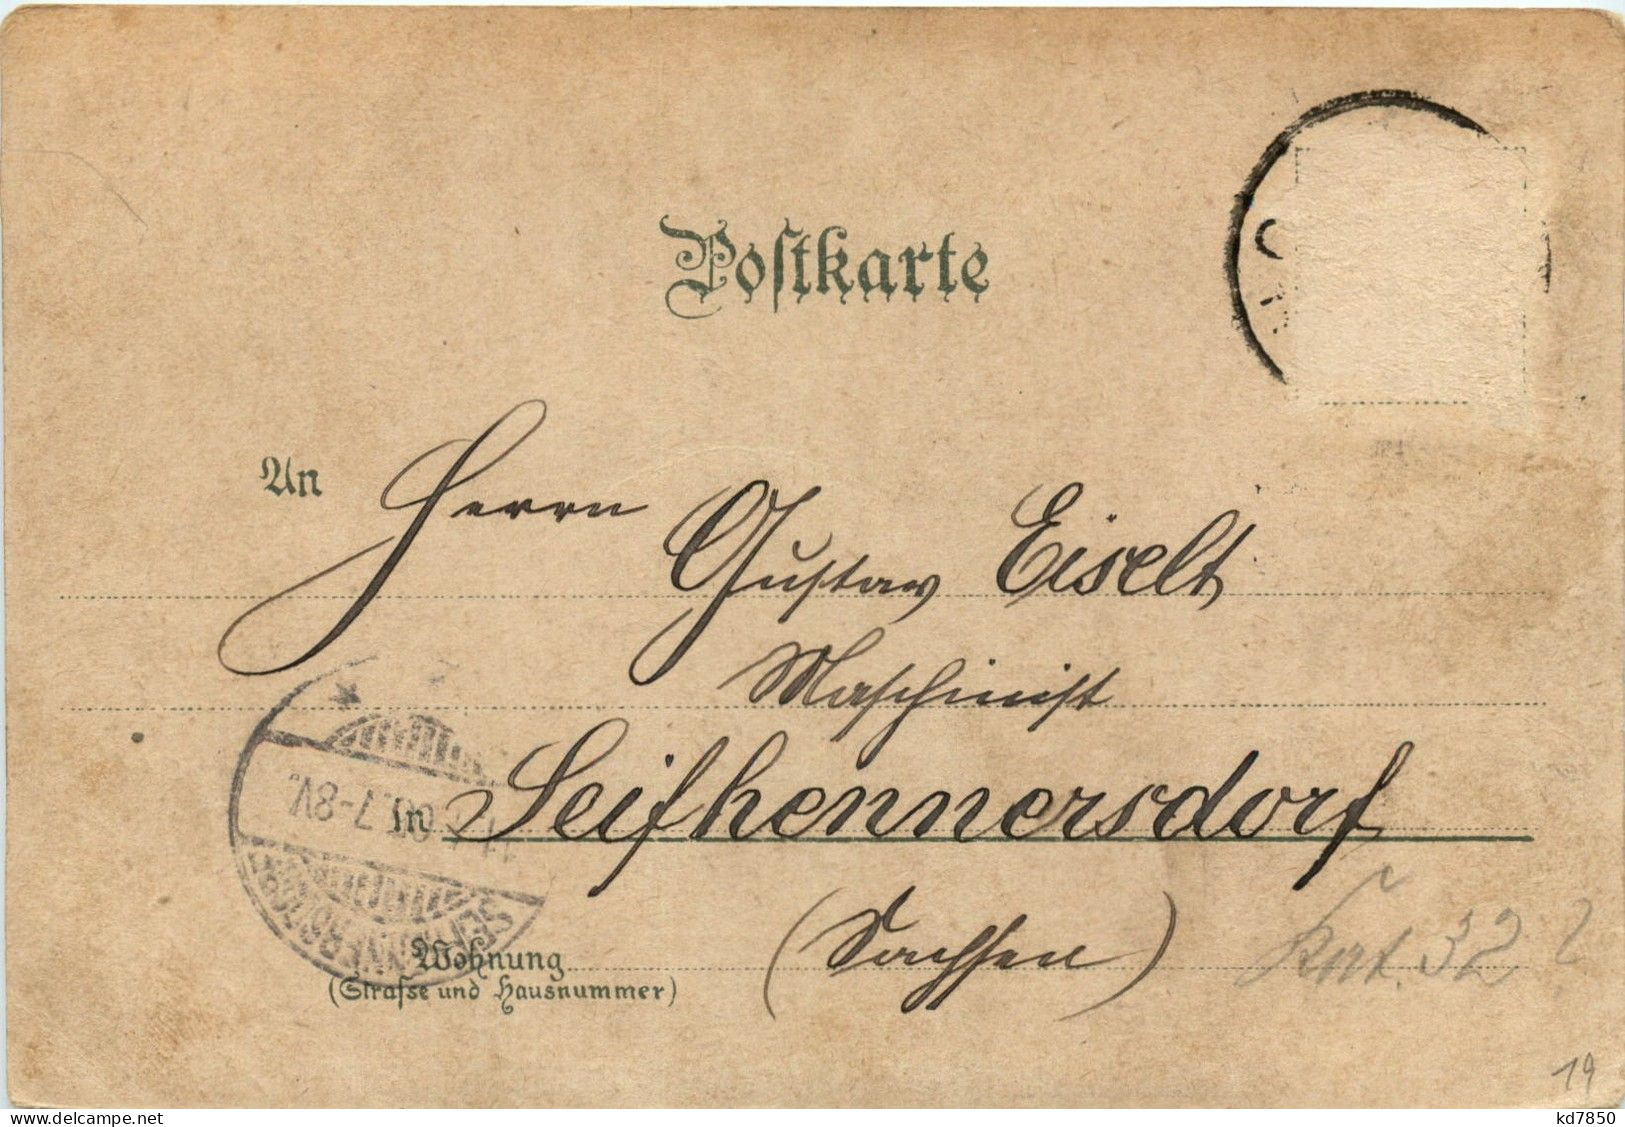 Postkarte
An Herrn Gustav Eiselt
Maschinist
in Seifhennersdorf
7-8V.
SEIFHENNERSDORF
(Sachsen)
32 ?
Wohnung
(Strasse und Hausnummer)
19
www.delcampe.net
kd7850